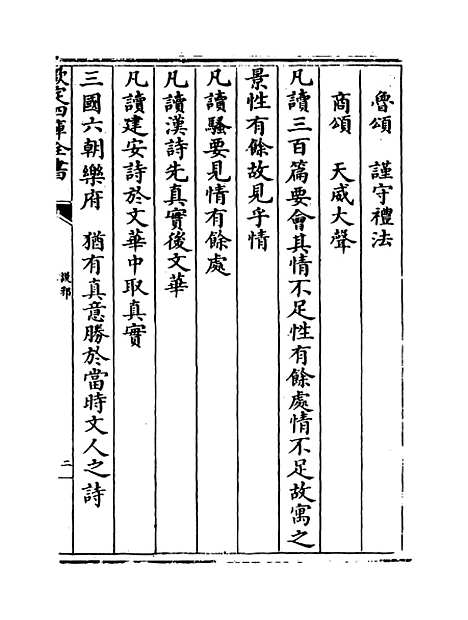 魯頌　謹守禮法
商頌　天威大聲
凡讀三百篇要會其情不足性有餘處情不足故寓之
景性有餘故見乎情
凡讀騷要見情有餘處
凡讀漢詩先真實後文華
凡讀建安詩於文華中取真實
三國六朝樂府　猶有真意勝於當時文人之詩
欽定四庫全書
說郛
二